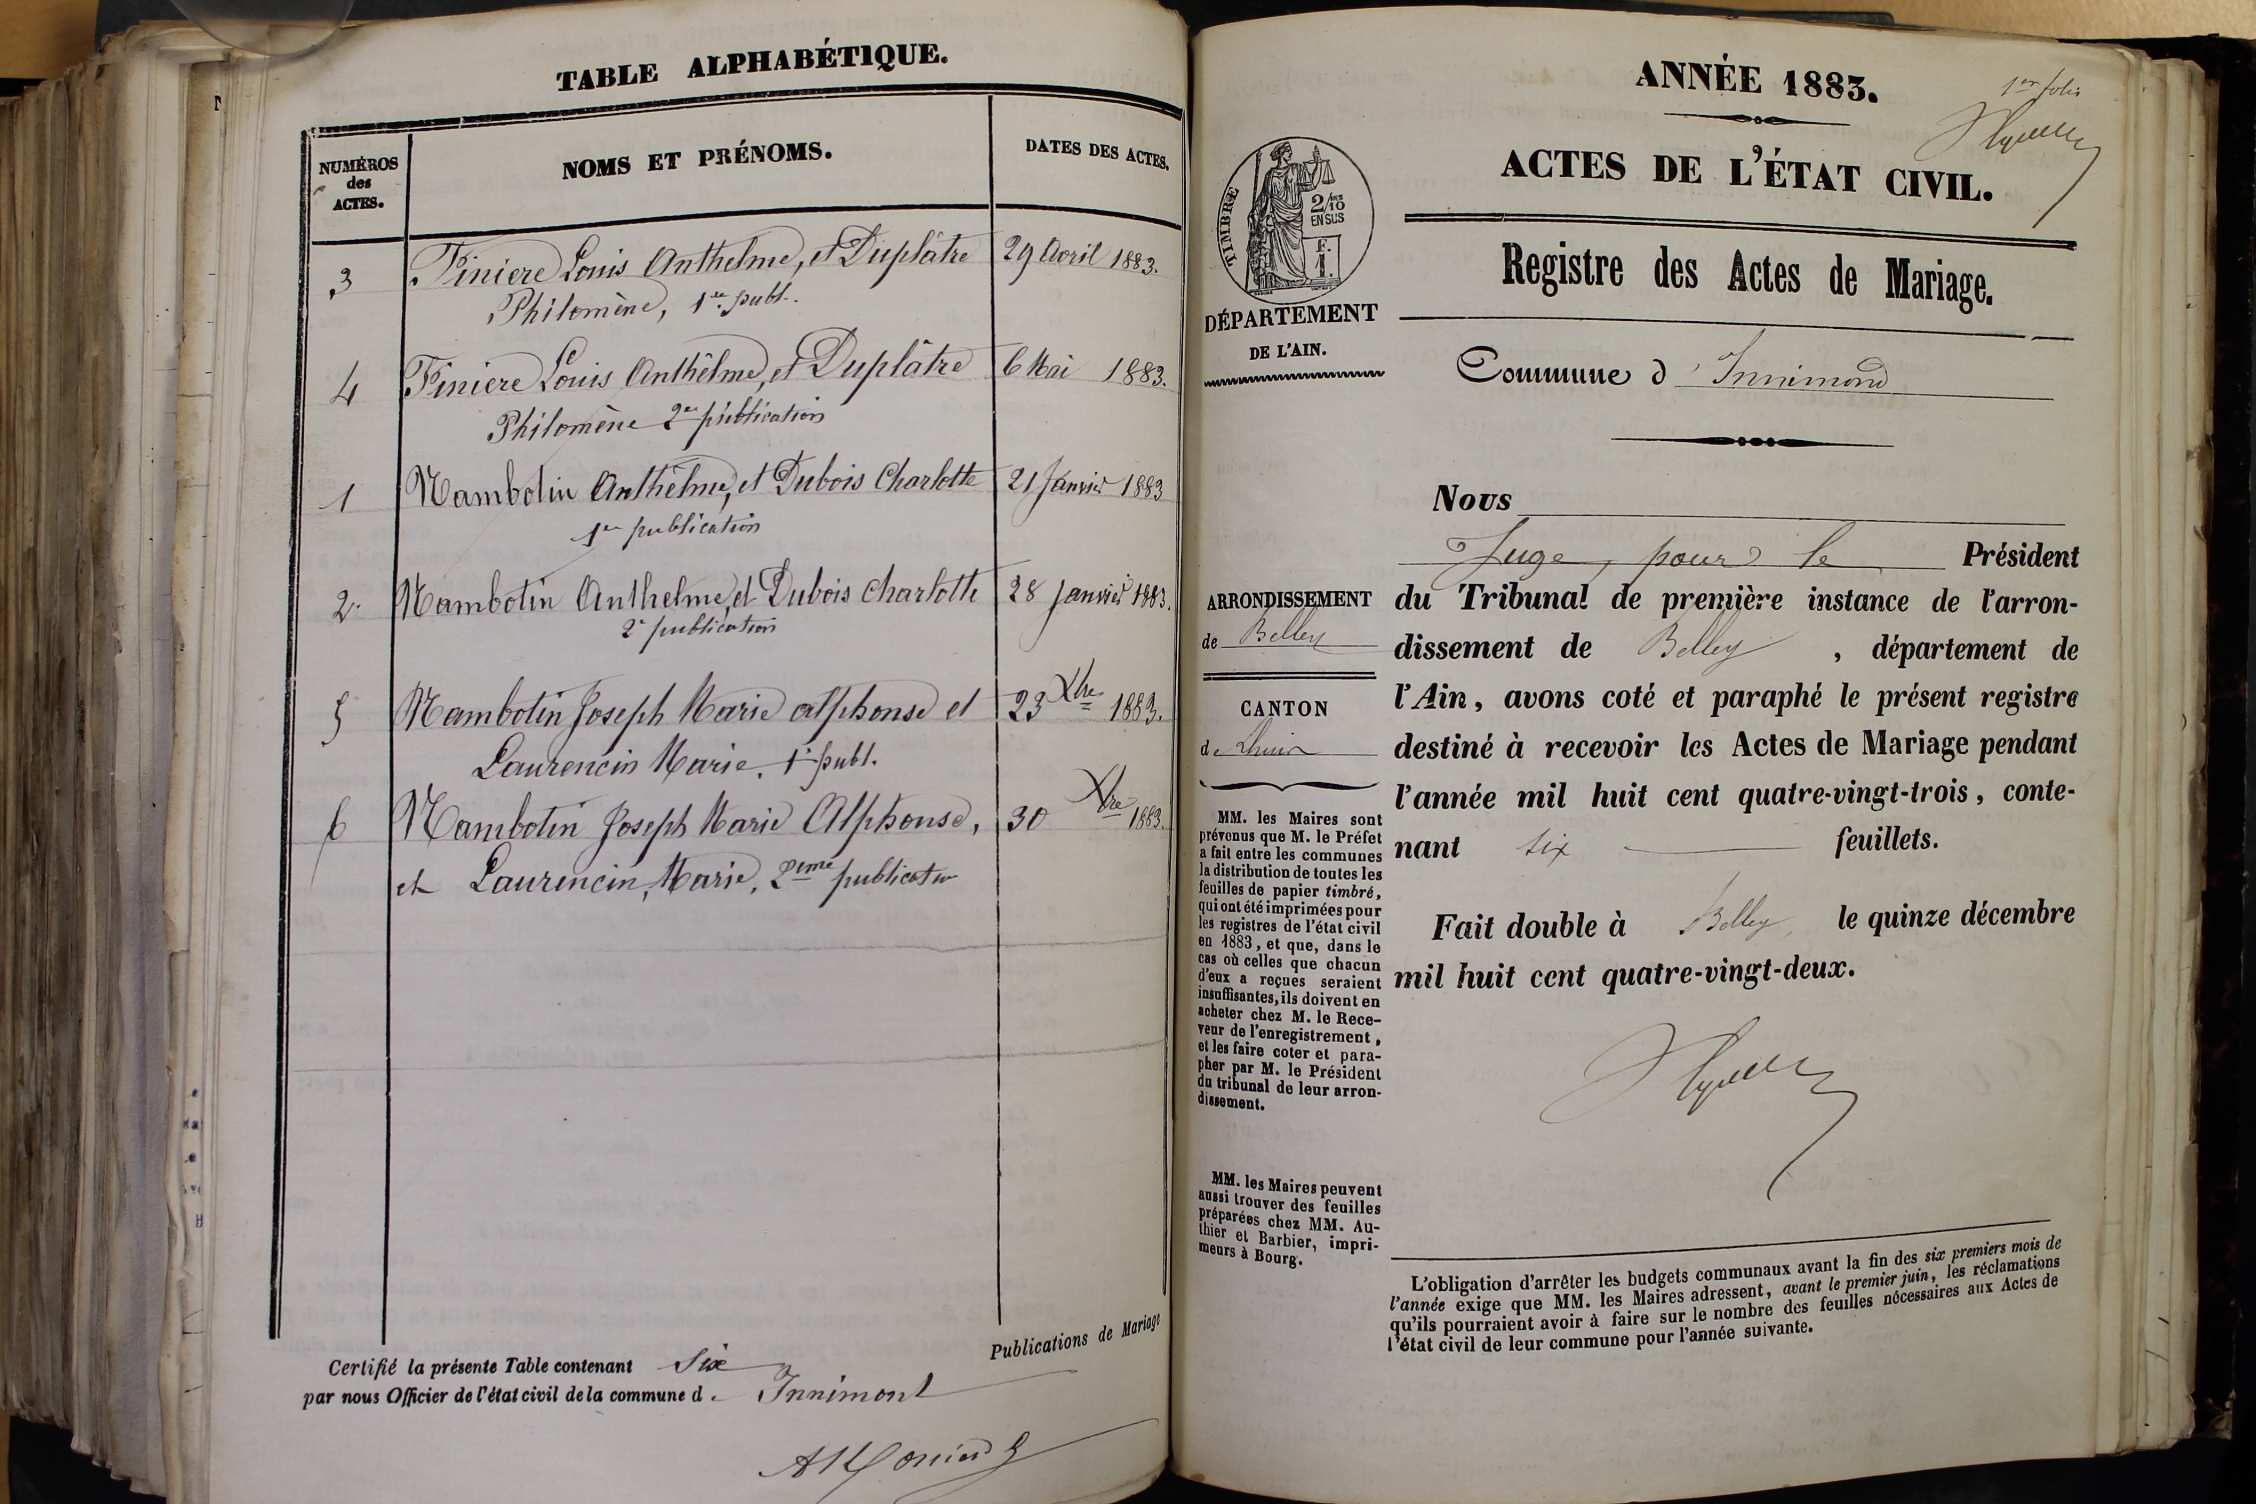 TABLE ALPHABÉTIQUE.
NUMÉROS
des
ACTES.
NOMS ET PRÉNOMS.
DATES DES ACTES.
3 Finiere Louis Anthelme, et Duplâtre 29 Avril 1883.
Philomène, 1re publ.
4 Finiere Louis Anthèlme, et Duplâtre 6 Mai 1883.
Philomène 2e publication
1 Mambotin Anthèlme, et Dubois Charlotte 21 Janvier 1883
1re publication
2. Mambotin Anthelme, et Dubois Charlotte 28 Janvier 1883.
2e publication
5 Mambotin Joseph Marie alphonse et 23 Xbre 1883.
Laurencin Marie. 1e publ.
6 Mambotin Joseph Marie Alphonse, 30 Xbre 1883.
et Laurencin, Marie, 2eme publication
Certifié la présente Table contenant Six Publications de Mariage
par nous Officier de l'état civil de la commune d. Innimont
1er folio
ANNÉE 1883.
ACTES DE L'ÉTAT CIVIL.
Registre des Actes de Mariage.
TIMBRE
2/10
EN SUS
F.
1.
DÉPARTEMENT
DE L'AIN.
Commune d'Innimond
Nous
Juge, pour le Président
du Tribunal de première instance de l'arron-
dissement de Belley, département de
l'Ain, avons coté et paraphé le présent registre
destiné à recevoir les Actes de Mariage pendant
l'année mil huit cent quatre-vingt-trois, conte-
nant six feuillets.
Fait double à Belley, le quinze décembre
mil huit cent quatre-vingt-deux.
ARRONDISSEMENT
de Belley
CANTON
de Lhuis
MM. les Maires sont
prévenus que M. le Préfet
a fait entre les communes
la distribution de toutes les
feuilles de papier timbré,
qui ont été imprimées pour
les registres de l'état civil
en 1883, et que, dans le
cas où celles que chacun
d'eux a reçues seraient
insuffisantes, ils doivent en
acheter chez M. le Rece-
veur de l'enregistrement,
et les faire coter et para-
pher par M. le Président
du tribunal de leur arron-
dissement.
MM. les Maires peuvent
aussi trouver des feuilles
préparées chez MM. Au-
thier et Barbier, impri-
meurs à Bourg.
L'obligation d'arrêter les budgets communaux avant la fin des six premiers mois de
l'année exige que MM. les Maires adressent, avant le premier juin, les réclamations
qu'ils pourraient avoir à faire sur le nombre des feuilles nécessaires aux Actes de
l'état civil de leur commune pour l'année suivante.